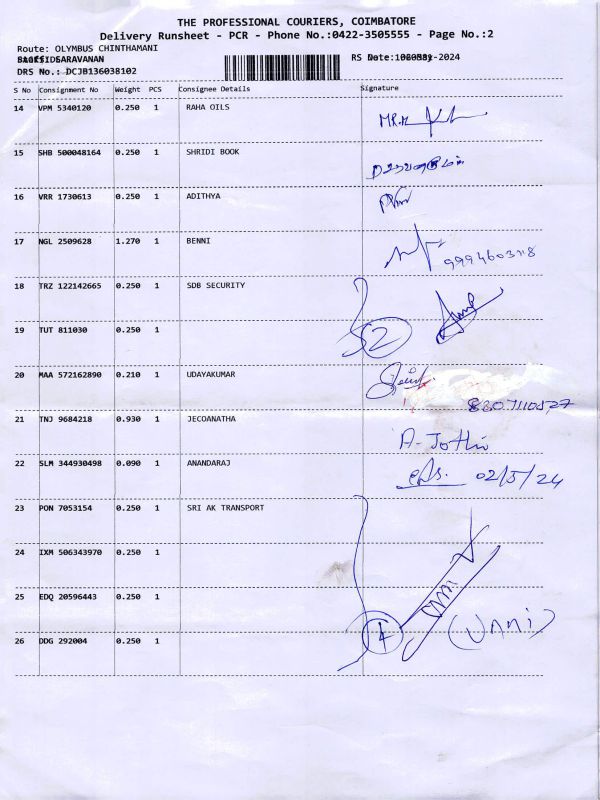 THE PROFESSIONAL COURIERS, COIMBATORE
Delivery Runsheet - PCR - Phone No.:0422-3505555 - Page No.:2
Route: OLYMBUS CHINTHAMANI
SARAVANAN
DRS No.: DCJB136038102
RS Date: -2024
S No Consignment No Weight PCS Consignee Details Signature
14 VPM 5340120 0.250 1 RAHA OILS MR.M
15 SHB 500048164 0.250 1 SHRIDI BOOK
16 VRR 1730613 0.250 1 ADITHYA
17 NGL 2509628 1.270 1 BENNI
18 TRZ 122142665 0.250 1 SDB SECURITY
19 TUT 811030 0.250 1 2
20 MAA 572162890 0.210 1 UDAYAKUMAR
8807110527
21 TNJ 9684218 0.930 1 JECOANATHA A. Jothi
22 SLM 344930498 0.090 1 ANANDARAJ 02/5/24
23 PON 7053154 0.250 1 SRI AK TRANSPORT
24 IXM 506343970 0.250 1
25 EDQ 20596443 0.250 1
(Unni)
26 DDG 292004 0.250 1 4